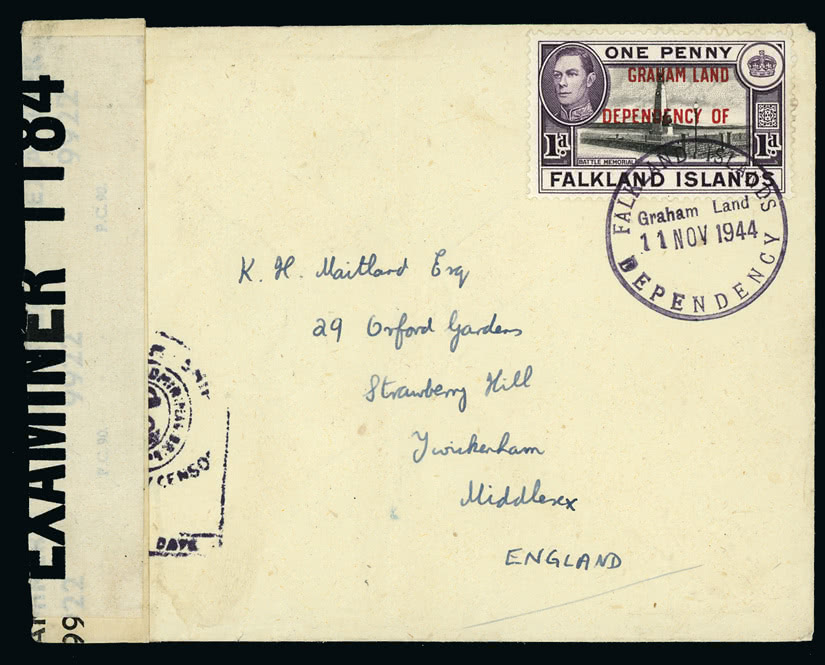 ONE PENNY
GRAHAM LAND
DEPENDENCY OF
1d. 1d.
BATTLE MEMORIAL
FALKLAND ISLANDS
FALKLAND ISLANDS
Graham Land
11 NOV 1944
DEPENDENCY
K. H. Maitland Esq
29 Orford Gardens
Strawberry Hill
Twickenham
Middlesex
ENGLAND
EXAMINER 1184
P.C. 90.
P.C. 90.
9922
9922
99
CENSO
DATE